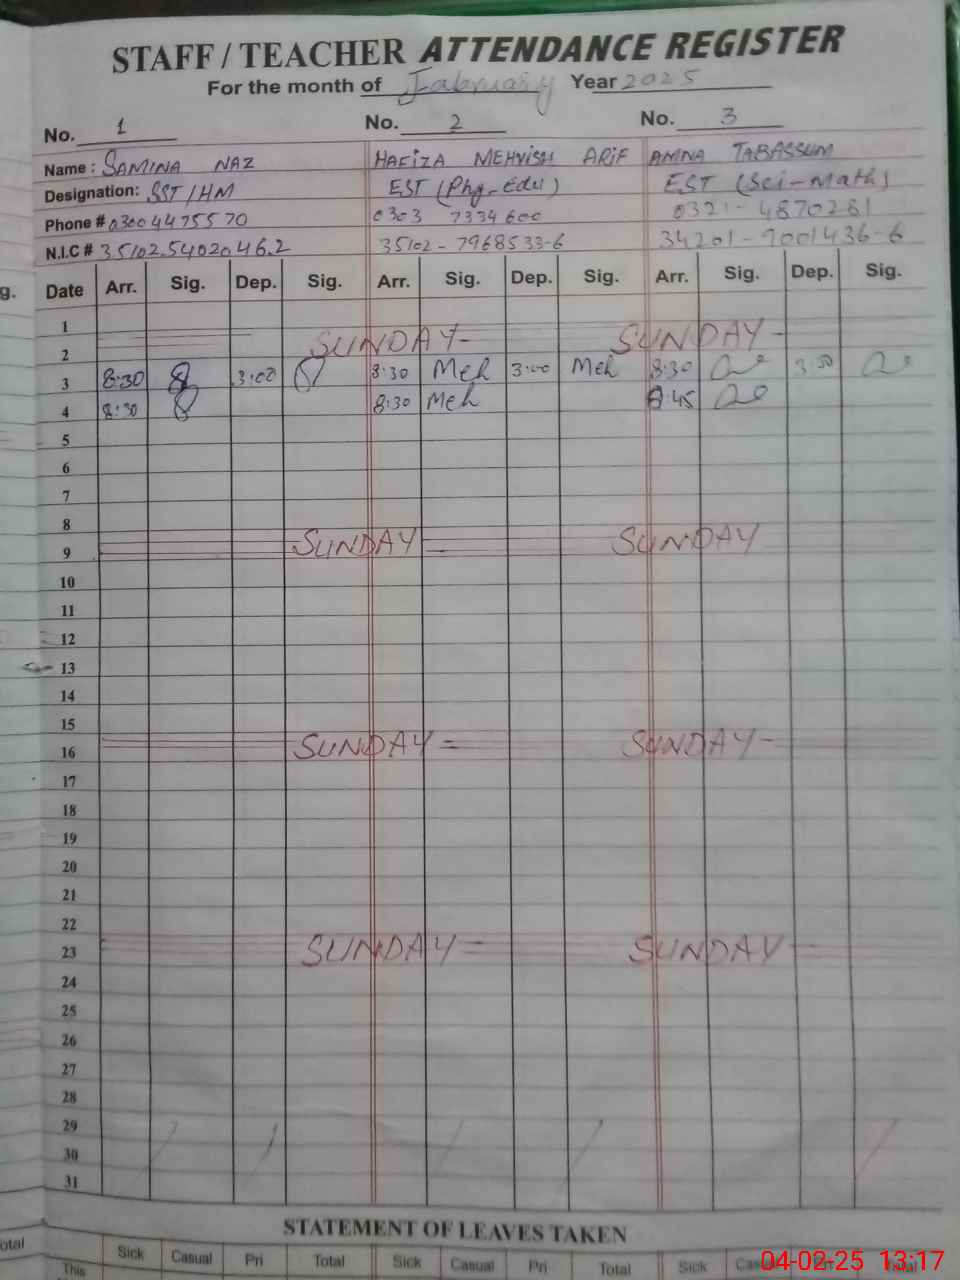 STAFF / TEACHER ATTENDANCE REGISTER
For the month of February Year 2025
No. 1 No. 2 No. 3
Name : SAMINA NAZ HAFIZA MEHVISH ARIF AMNA TABASSUM
Designation: SST/HM EST (Phy-Edu) EST (Sci-Math)
Phone # 0300 4475570 0303 7334600 0321-4870281
N.I.C # 35102.5402046.2 35102-7968533-6 34201-9001436-6
g. Date Arr. Sig. Dep. Sig. Arr. Sig. Dep. Sig. Arr. Sig. Dep. Sig.
1
2 SUNDAY- SUNDAY-
3 8:30 3:00 8:30 Meh 3:00 Meh 8:30 3:30
4 8:30 8:30 Meh 8:45
5
6
7
8
9 SUNDAY SUNDAY
10
11
12
13
14
15
16 SUNDAY = SUNDAY-
17
18
19
20
21
22
23 SUNDAY = SUNDAY
24
25
26
27
28
29
30
31
STATEMENT OF LEAVES TAKEN
otal Sick Casual Pri Total Sick Casual Pri Total Sick
This
04-02-25 13:17